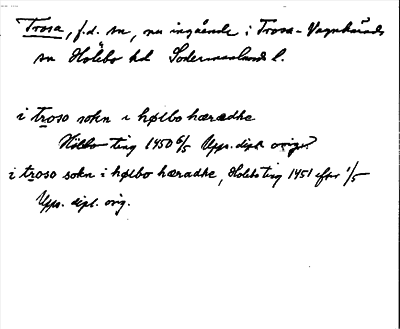 Trosa, f.d. sn, nu ingående i Trosa-Vagnhärads
sn Hölebo hd Södermanlands l.
i troso sokn i hølbo hæradhe
Hölbo ting 1450 6/5 Upps. dipl. orig.?
i troso sokn i hølbo hæradhe, Holebo ting 1451 efter 1/5
Upps. dipl. orig.